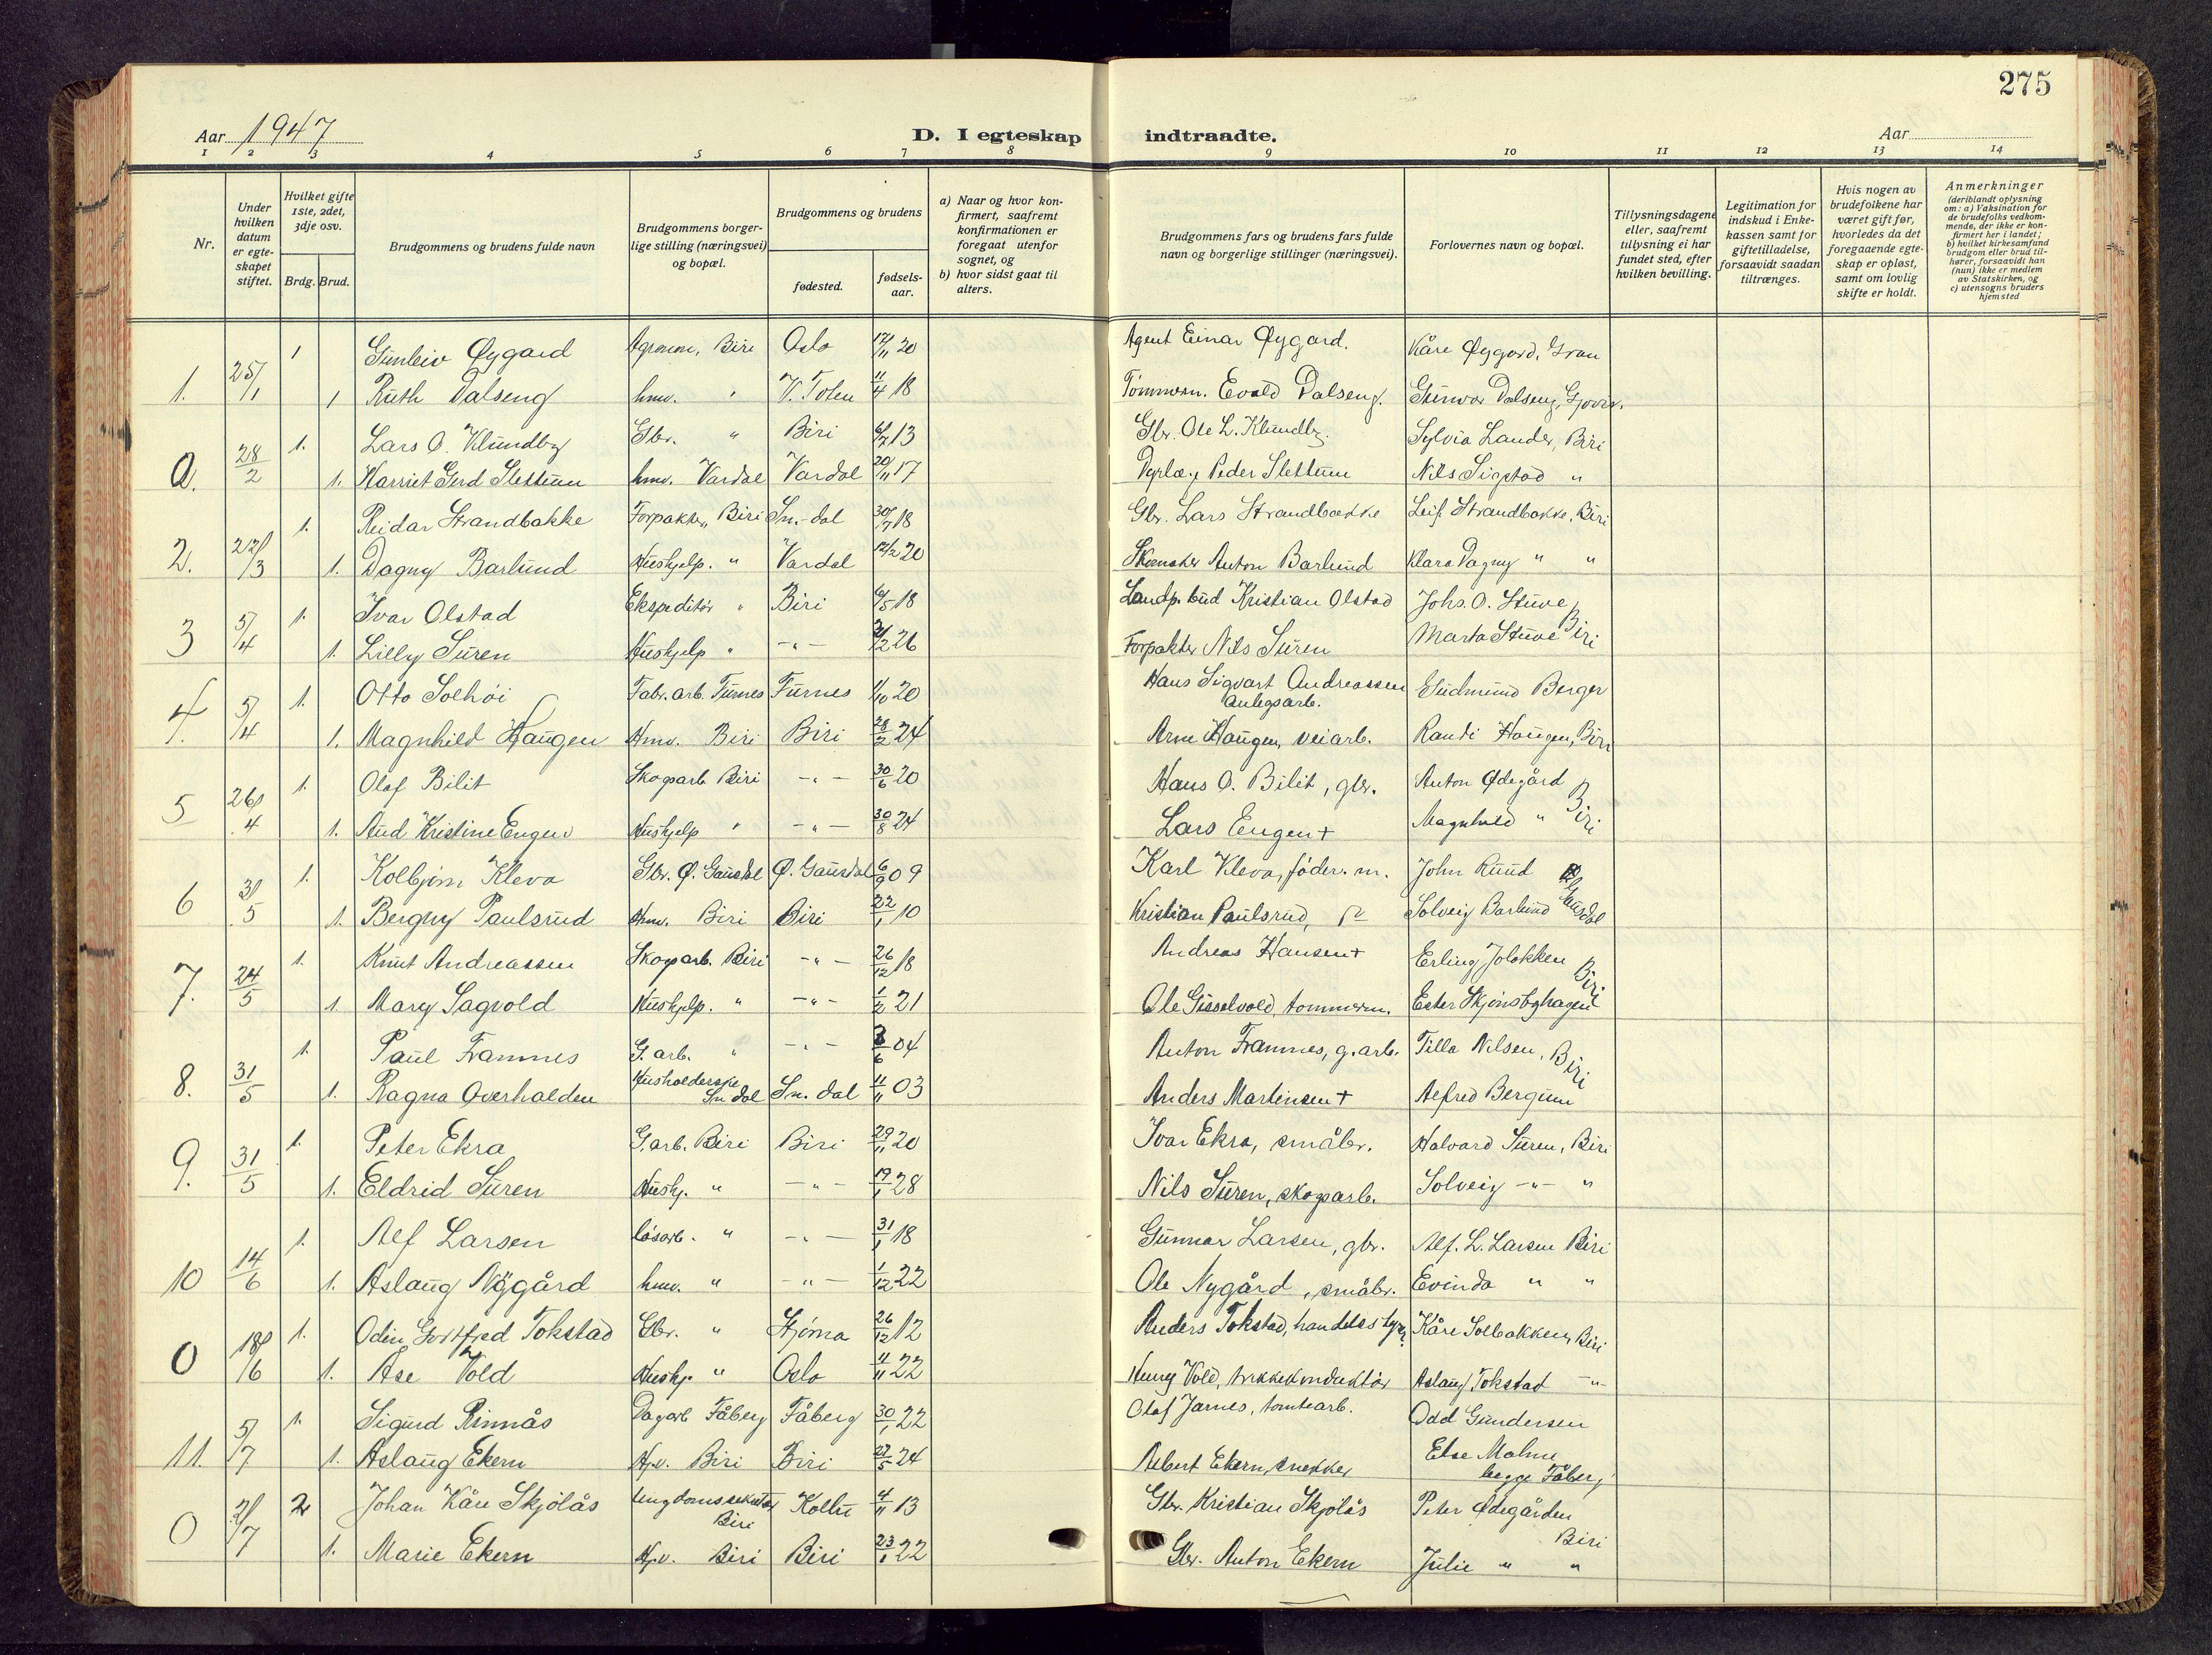 275
Aar 1947
D. I egteskap indtraadte.
Aar
1 2 3 4 5 6 7 8 9 10 11 12 13 14
Nr.
Under hvilken datum er egte-skapet stiftet.
Hvilket gifte 1ste, 2det, 3dje osv.
Brdg. Brud.
Brudgommens og brudens fulde navn
Brudgommens borger-lige stilling (næringsvei) og bopæl.
Brudgommens og brudens
fødested.
fødsels-aar.
a) Naar og hvor kon-firmert, saafremt konfirmationen er foregaat utenfor sognet, og
b) hvor sidst gaat til alters.
Brudgommens fars og brudens fars fulde navn og borgerlige stillinger (næringsvei).
Forlovernes navn og bopæl.
Tillysningsdagene eller, saafremt tillysning ei har fundet sted, efter hvilken bevilling.
Legitimation for indskud i Enke-kassen samt for giftetilladelse, forsaavidt saadan tiltrænges.
Hvis nogen av brudefolkene har været gift før, hvorledes da det foregaaende egte-skap er opløst, samt om lovlig skifte er holdt.
Anmerkninger (deriblandt oplysning om: a) Vaksination for de brudefolks vedkom-mende, der ikke er kon-firmert her i landet; b) hvilket kirkesamfund brudgom eller brud til-hører, forsaavidt han (hun) ikke er medlem av Statskirken, og c) utensogns bruders hjemsted
1. 25/1 1 Gunleiv Øygard Agronom, Biri Oslo 20 Agent Einar Øygard. Kåre Øygard, Gran
1 Ruth Dalseng hmv. " V. Toten 11/4 18 Tømmerm. Evald Dalseng. Gunvor Dalseng, Gjøvik.
a. 28/2 1. Lars O. Klundby Gbr. " Biri 13 Gbr. Ole L. Klundby. Sylvia Lander, Biri
1. Harriet Gerd Slettum hmv. Vardal Vardal 20/11 17 Dyrlæge Peder Slettum Nils Sigstad "
2. 22/3 1. Reidar Strandbakke Forpakter, Biri Sn.-dal 30/7 18 Gbr. Lars Strandbakke Leif Strandbakke, Biri
1. Dagny Barlund Hushjelp. " Vardal 12/2 20 Skomaker Anton Barlund Klara Dagny " "
3 5/4 1. Ivar Olstad Ekspeditör " Biri 6/5 18 Landp. bud Kristian Olstad Johs. O. Stuve
1. Lilly Suren Hushjelp " -"- 26 Forpakter Nils Suren Marta Stuve Biri
4. 5/4 1. Otto Solhøi Fabr. arb. Furnes Furnes 1/10 20 Hans Sigvart Andreassen anlegsarb. Gudmund Berger
1. Magnhild Haugen Hmv. Biri Biri 28/2 24 Arne Haugen, veiarb. Randi Haugen, Biri
5 26/4 1. Olaf Bilit Skogsarb Biri -"- 30/6 20 Hans O. Bilit, gbr. Anton Ødegård
1. Aud Kristine Engen Hushjelp " -"- 30/8 24 Lars Engen + Magnhild " Biri
6 31/5 1. Kolbjørn Kleva Gbr. Ø. Gausdal Ø. Gausdal 6/9 09 Karl Kleva, föder. m. John Ruud
1. Bergny Paulsrud Hmv. Biri Biri 22/1 10 Kristian Paulsrud, Solveig Barlund Gausdal
7. 24/5 1. Knut Andreassen Skogsarb. Biri -"- 26/12 18 Andreas Hansen + Erling Jolokken
1. Mary Sagvold Hushjelp. " -"- 1/2 21 Ole Gisselvold, tømmerm. Ester Skjønsbyhagen Biri
8. 31/5 1. Paul Framnes G. arb. " -"- 04 Anton Framnes, g. arb. Tilla Nilsen, Biri
1. Ragna Overhalden Husholderske Sn dal Sn. dal 11/11 03 Anders Martinsen + Alfred Bergum
9. 31/5 1. Peter Ekra G. arb. Biri Biri 29/11 20 Ivar Ekra, småbr. Halvard Suren, Biri
1. Eldrid Suren Hushj. " -"- 19/1 28 Nils Suren, skogsarb. Solveig -"- "
10 14/6 1. Alf Larsen løsarb. " -"- 31/1 18 Gunnar Larsen, gbr. Alf. L. Larsen Biri
1. Aslaug Nÿgård hmv. " -"- 1/12 22 Ole Nygård, småbr. Evinda " "
0 18/6 1. Odin Gottfred Tokstad Gbr. " 26/12 12 Anders Tokstad, handelsstyr. Kåre Solbakken, Biri
1. Åse Vold Hushj. " Oslo 4/11 22 Vold, trikkekonduktör Aslaug Tokstad -"-
11. 5/7 1. Sigurd Rinnås Dagarb Fåberg Fåberg 30/1 22 Olaf Jarnes, tomtearb. Odd Gundersen
1. Aslaug Ekern Hjv. Biri Biri 27/5 24 Albert Ekern, snekker Else Malme begge Fåberg
0 2 Johan Kåre Skjölås Ungdomssekretær Biri Kolbu 4/11 13 Gbr. Kristian Skjölås Peter Ødegården Biri
1. Marie Ekern Hjv. Biri Biri 23/1 22 Gbr. Anton Ekern Julie " "